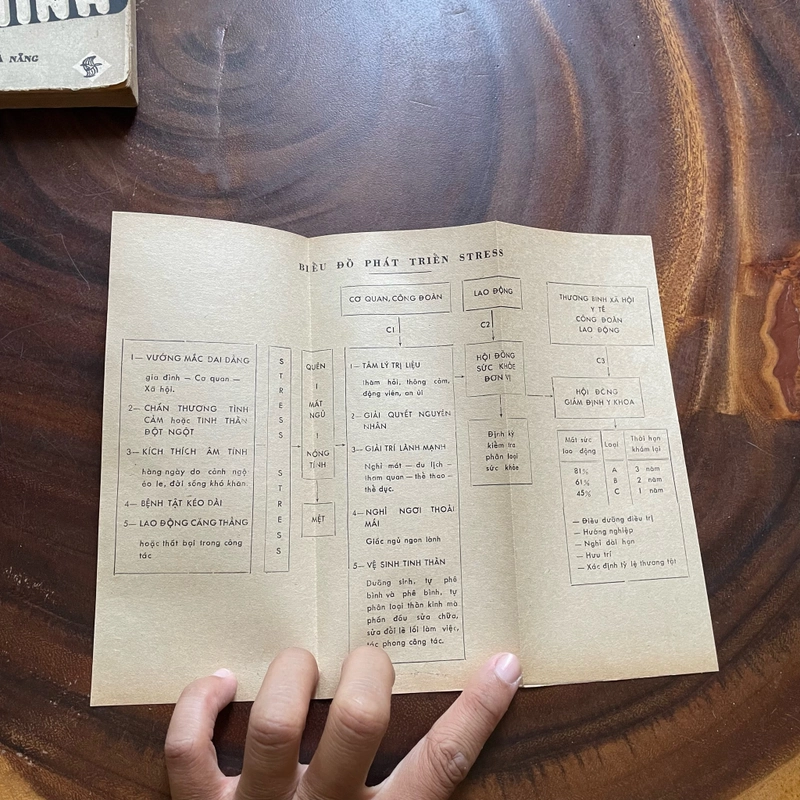 À NẴNG
BIỂU ĐỒ PHÁT TRIỂN STRESS
CƠ QUAN, CÔNG ĐOÀN
LAO ĐỘNG
THƯƠNG BINH XÃ HỘI
Y TẾ
CÔNG ĐOÀN
LAO ĐỘNG
C1
C2
C3
1— VƯỚNG MẮC DAI DẲNG
gia đình — Cơ quan —
Xã hội.
2— CHẤN THƯƠNG TÌNH
CẢM hoặc TINH THẦN
ĐỘT NGỘT
3— KÍCH THÍCH ÂM TÍNH
hàng ngày do cảnh ngộ
éo le, đời sống khó khăn.
4— BỆNH TẬT KÉO DÀI
5— LAO ĐỘNG CĂNG THẲNG
hoặc thất bại trong công
tác
S
T
R
E
S
S
S
T
R
E
S
S
QUÊN
MẤT
NGỦ
NÓNG
TÍNH
MỆT
1— TÂM LÝ TRỊ LIỆU
thăm hỏi, thông cảm,
động viên, an ủi
2— GIẢI QUYẾT NGUYÊN
NHÂN
3— GIẢI TRÍ LÀNH MẠNH
Nghỉ mát — du lịch —
tham quan — thể thao —
thể dục.
4— NGHỈ NGƠI THOẢI
MÁI
Giấc ngủ ngon lành
5— VỆ SINH TINH THẦN
Dưỡng sinh, tự phê
bình và phê bình, tự
phân loại thần kinh mà
phấn đấu sửa chữa,
sửa đổi lề lối làm việc,
tác phong công tác.
HỘI ĐỒNG
SỨC KHỎE
ĐƠN VỊ
Định kỳ
kiểm tra
phân loại
sức khỏe
HỘI ĐỒNG
GIÁM ĐỊNH Y KHOA
Mất sức lao động Loại Thời hạn khám lại
81% A 3 năm
61% B 2 năm
45% C 1 năm
— Điều dưỡng điều trị
— Hướng nghiệp
— Nghỉ dài hạn
— Hưu trí
— Xác định tỷ lệ thương tật